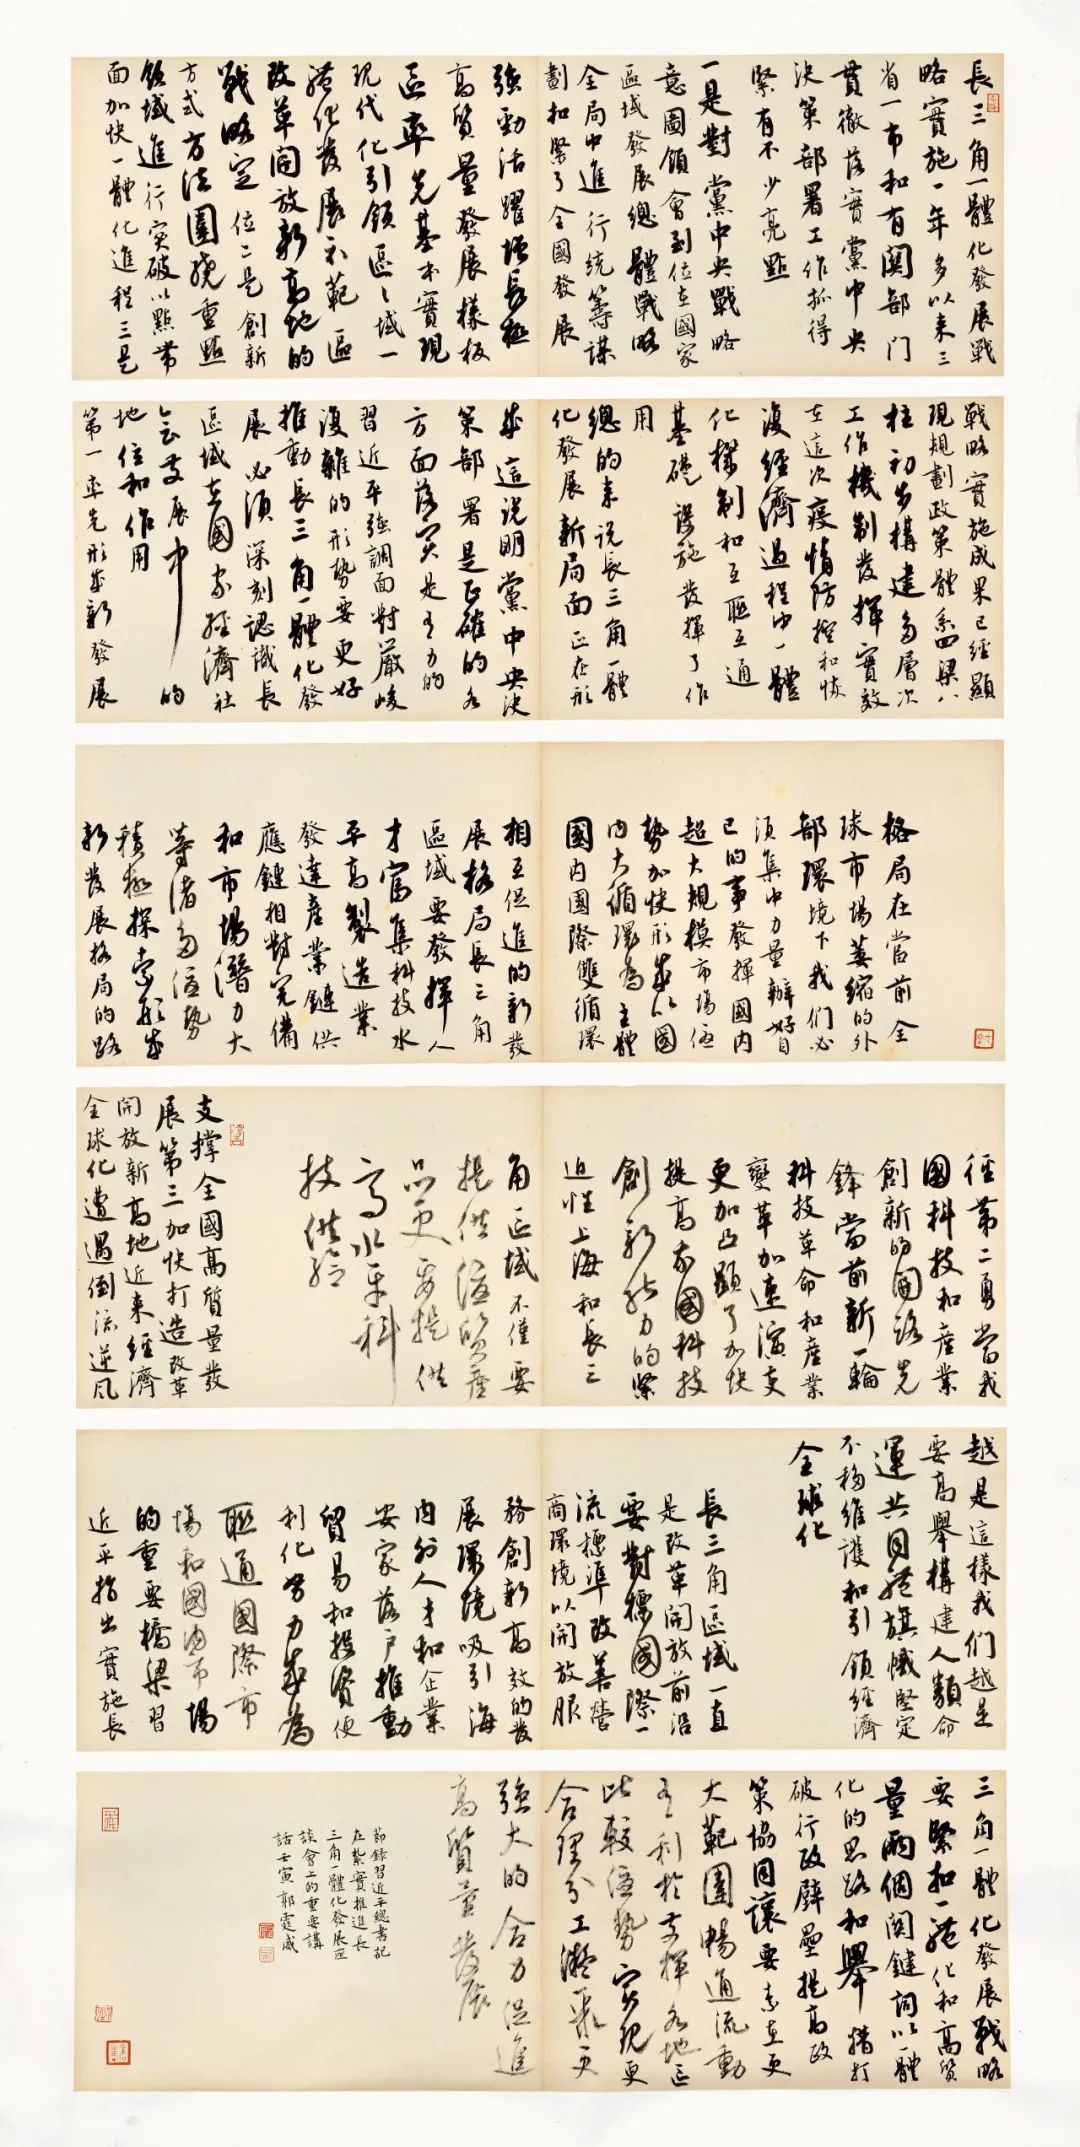 長三角一體化發展戰
略實施一年多以来三
省一市和有関部门
貫徹落實黨中央
决策部署工作抓得
緊有不少亮點
一是對黨中央戰略
意圖領會到位在國家
區域發展總體戰略
全局中進行統籌謀
劃扣緊了全國發展
強勁活躍增長極
高質量發展樣板
區率先基本實現
現代化引領區區域一
體化發展示範區
改革開放新高地的
戰略定位二是創新
方式方法圍繞重點
領域進行突破以點帶
面加快一體化進程三是
戰略實施成果已經顯
現規劃政策體系四梁八
柱初步構建多層次
工作機制發揮實效
在這次疫情防控和恢
復經濟過程中一體
化機制和互聯互通
基礎設施發揮了作
用
總的來説長三角一體
化發展新局面正在形
成這说明黨中央決
策部署是正確的各
方面落实是有力的
習近平強調面對嚴峻
復雜的形勢要更好
推動長三角一體化發
展必須深刻認識長
區域在國家經濟社
會發展中的
地位和作用
第一率先形成新發展
格局在當前全
球市場萎縮的外
部環境下我们必
須集中力量辦好自
己的事發揮國内
超大規模市場優
勢加快形成以國
内大循環為主體
國内國際雙循環
相互促進的新發
展格局長三角
區域要發揮人
才富集科技水
平高製造業
發達產業鏈供
應鏈相對完備
和市場潛力大
等諸多優勢
積極探索形成
新發展格局的路
徑第二勇當我
國科技和產業
創新的開路先
鋒當前新一輪
科技革命和產業
變革加速演变
更加凸顯了加快
提高我國科技
創新能力的緊
迫性上海和長三
角區域不僅要
提供優質產
品更要提供
高水平科
技供給
支撐全國高質量發
展第三加快打造改革
開放新高地近來經濟
全球化遭遇倒流逆风
越是這樣我们越是
要高舉構建人類命
運共同體旗幟堅定
不移維護和引領經濟
全球化
長三角區域一直
是改革開放前沿
要對標國際一
流標準改善營
商環境以開放服
務創新高效的發
展環境吸引海
内外人才和企業
安家落户推動
貿易和投資便
利化努力成為
聯通國際市
場和國内市場
的重要橋梁習
近平指出實施長
三角一體化發展戰略
要緊扣一體化和高質
量兩個関鍵詞以一體
化的思路和舉措打
破行政壁壘提高政
策協同讓要素在更
大範圍暢通流動
有利於發揮各地區
比較優勢實現更
合理分工凝聚更
強大的合力促進
高質量發展
節錄習近平總書記
在紮實推進長
三角一體化發展座
談會上的重要講
話壬寅郭雯威